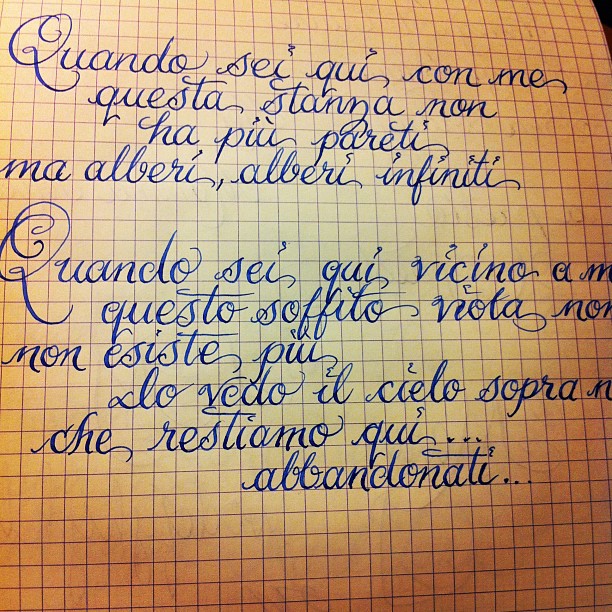 Quando sei qui con me
questa stanza non
ha più pareti
ma alberi, alberi infiniti
Quando sei qui vicino a m
questo soffito viola non
non esiste più
Io vedo il cielo sopra n
che restiamo qui...
abbandonati...